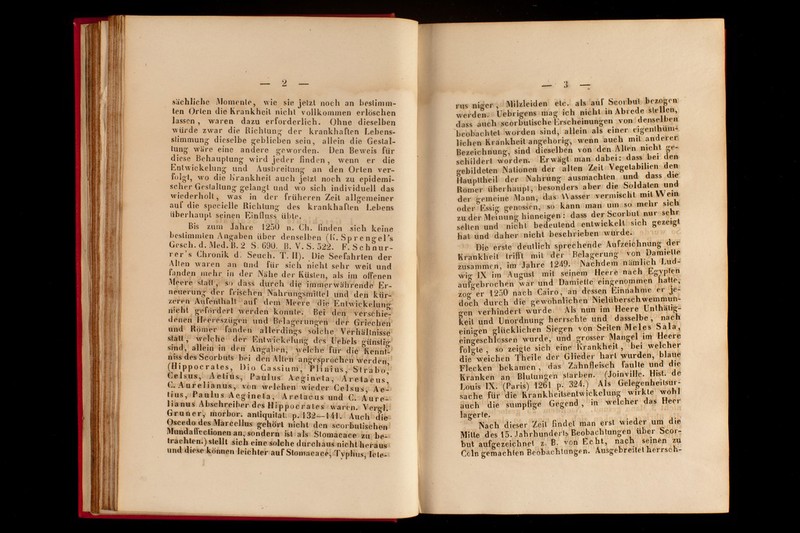 — 2 —
sächliche Momente, wie sie jetzt noch an bestimm-
ten Orten die Krankheit nicht vollkommen erlöschen
lassen, waren dazu erforderlich. Ohne dieselben
würde zwar die Richtung der krankhaften Lebens-
stimmung dieselbe geblieben sein, allein die Gestal-
tung wäre eine andere geworden. Den Beweis für
diese Behauptung wird jeder finden, wenn er die
Entwickelung und Ausbreitung an den Orten ver-
folgt, wo die Krankheit auch jetzt noch zu epidemi-
scher Gestaltung gelangt und wo sich individuell das
wiederholt, was in der früheren Zeit allgemeiner
auf die specielle Richtung des krankhaften Lebens
überhaupt seinen Einfluss übte.
Bis zum Jahre 1250 n. Ch. finden sich keine
bestimmten Angaben über denselben (K. Sprengel's
Gesch. d. Med. B. 2 S. 690. B. V. S. 522. F. Schnur-
rer's Chronik d. Seuch. T. II). Die Seefahrten der
Alten waren an und für sich nicht sehr weit und
fanden mehr in der Nähe der Küsten, als im offenen
Meere statt, so dass durch die immerwährende Er-
neuerung der frischen Nahrungsmittel und den kür-
zeren Aufenthalt auf dem Meere die Entwickelung
nicht gefördert werden konnte. Bei den verschie-
denen Heereszügen und Belagerungen der Griechen
und Römer fanden allerdings solche Verhältnisse
statt, welche der Entwickelung des Uebels günstig
sind, allein in den Angaben, welche für die Kennt-
niss des Scorbuts bei den Alten angesprochen werden,
(Hippocrates, Dio Cassium, Plinius, Strabo,
Celsus, Aetius, Paulus Aegineta, Aretaeus,
C. Aurelianus, von welchen wieder Celsus, Ae-
tius, Paulus Aegineta, Aretaeus und C. Aure-
lianus Abschreiber des Hippocrates waren. Vergl.
Gruner, morbor. antiquitat. p. 132—141. Auch die
Oscedo des Marcellus gehört nicht den scorbutischen
Mundaffectionen an, sondern ist als Stomacace zu be-
trachten.) stellt sich eine solche durchaus nicht heraus
und diese können leichter auf Stomacace, Typhus, Icte-
— 3 —
rus niger, Milzleiden etc. als auf Scorbut bezogen
werden. Uebrigens mag ich nicht in Abrede stellen,
dass auch scorbutische Erscheinungen von denselben
beobachtet worden sind, allein als einer eigenthüm-
lichen Krankheit angehörig, wenn auch mit anderer
Bezeichnung, sind dieselben von den Alten nicht ge-
schildert worden. Erwägt man dabei: dass bei den
gebildeten Nationen der alten Zeit Vegetabilien den
Haupttheil der Nahrung ausmachten und dass die
Römer überhaupt, besonders aber die Soldaten und
der gemeine Mann, das Wasser vermischt mit Wein
oder Essig genossen, so kann man um so mehr sich
zu der Meinung hinneigen: dass der Scorbut nur sehr
selten und nicht bedeutend entwickelt sich gezeigt
hat und daher nicht beschrieben wurde.
Die erste deutlich sprechende Aufzeichnung der
Krankheit trifft mit der Belagerung von Damiette
zusammen, im Jahre 1249. Nachdem nämlich Lud-
wig IX im August mit seinem Heere nach Egypten
aufgebrochen war und Damiette eingenommen hatte,
zog er 1250 nach Cairo, an dessen Einnahme er je-
doch durch die gewöhnlichen Nielüberschwemmun-
gen verhindert wurde. Als nun im Heere Unthätig-
keit und Unordnung herrschte und dasselbe, nach
einigen glücklichen Siegen von Seiten Meles Sala,
eingeschlossen wurde, und grosser Mangel im Heere
folgte, so zeigte sich eine Krankheit, bei welcher
die weichen Theile der Glieder hart wurden, blaue
Flecken bekamen, das Zahnfleisch faulte und die
Kranken an Blutungen starben. (Joinville. Hist. de
Louis IX. (Paris) 1261 p. 324.) Als Gelegenheitsur-
sache für die Krankheitsentwickelung wirkte wohl
auch die sumpfige Gegend, in welcher das Heer
lagerte.
Nach dieser Zeit findet man erst wieder um die
Mitte des 15. Jahrhunderts Beobachtungen über Scor-
but aufgezeichnet z. B. von Echt, nach seinen zu
Cöln gemachten Beobachtungen. Ausgebreitet herrsch-